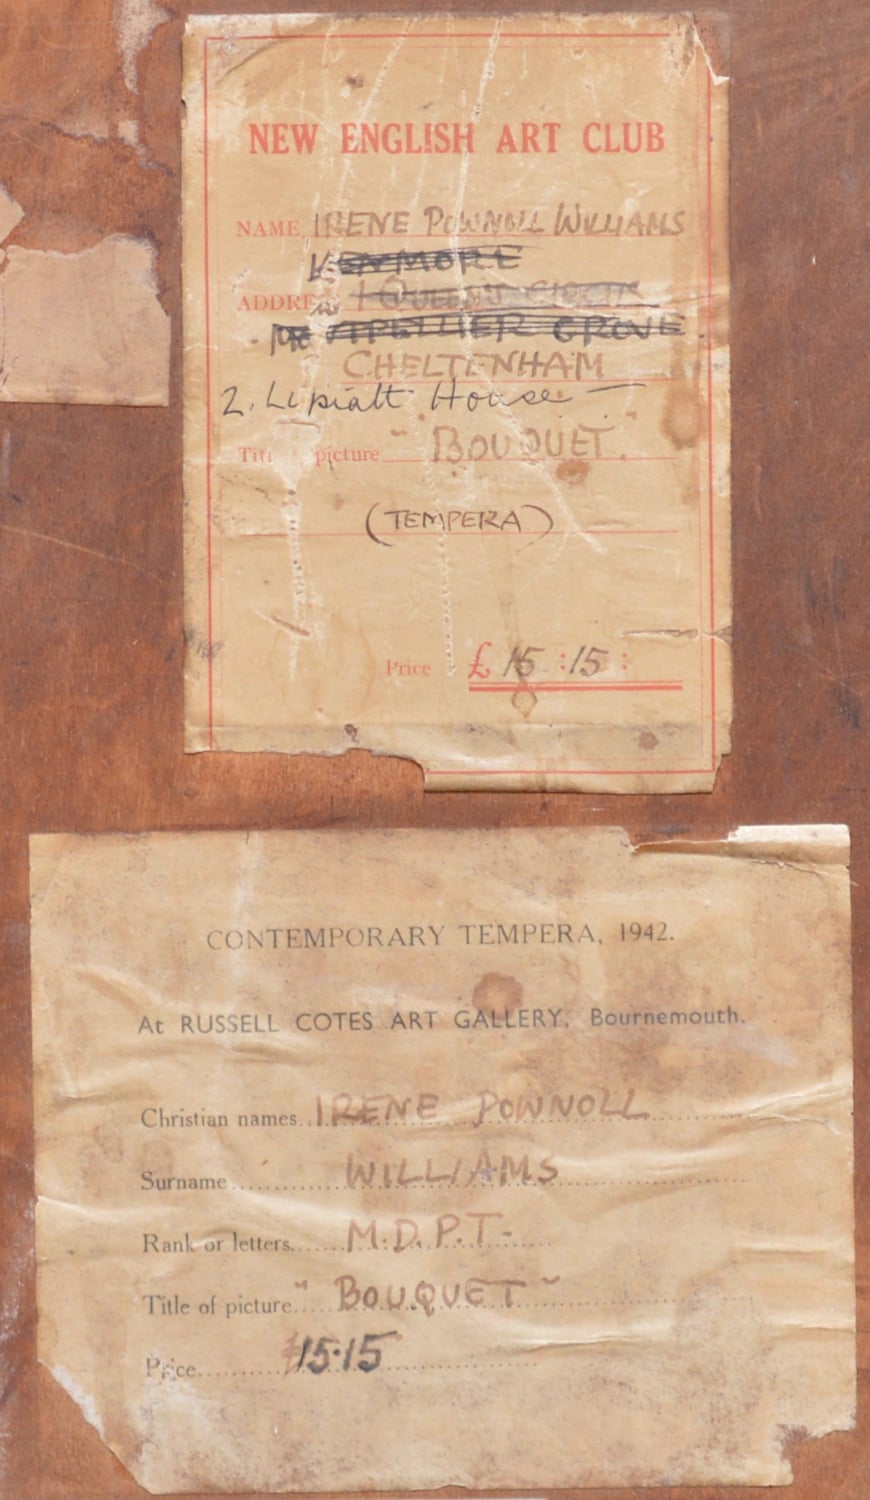 NEW ENGLISH ART CLUB
NAME IRENE POWNOLL WILLIAMS
KENMORE
ADDRE 1 QUEEN'S CIRCUS
MONTPELLIER GROVE
CHELTENHAM
2. Lypiatt House —
Tit picture "BOUQUET."
(TEMPERA)
Price £ 15 : 15 :
CONTEMPORARY TEMPERA, 1942.
At RUSSELL COTES ART GALLERY, Bournemouth.
Christian names IRENE POWNOLL
Surname WILLIAMS
Rank or letters M.D.P.T-
Title of picture "BOUQUET"
Price £15·15